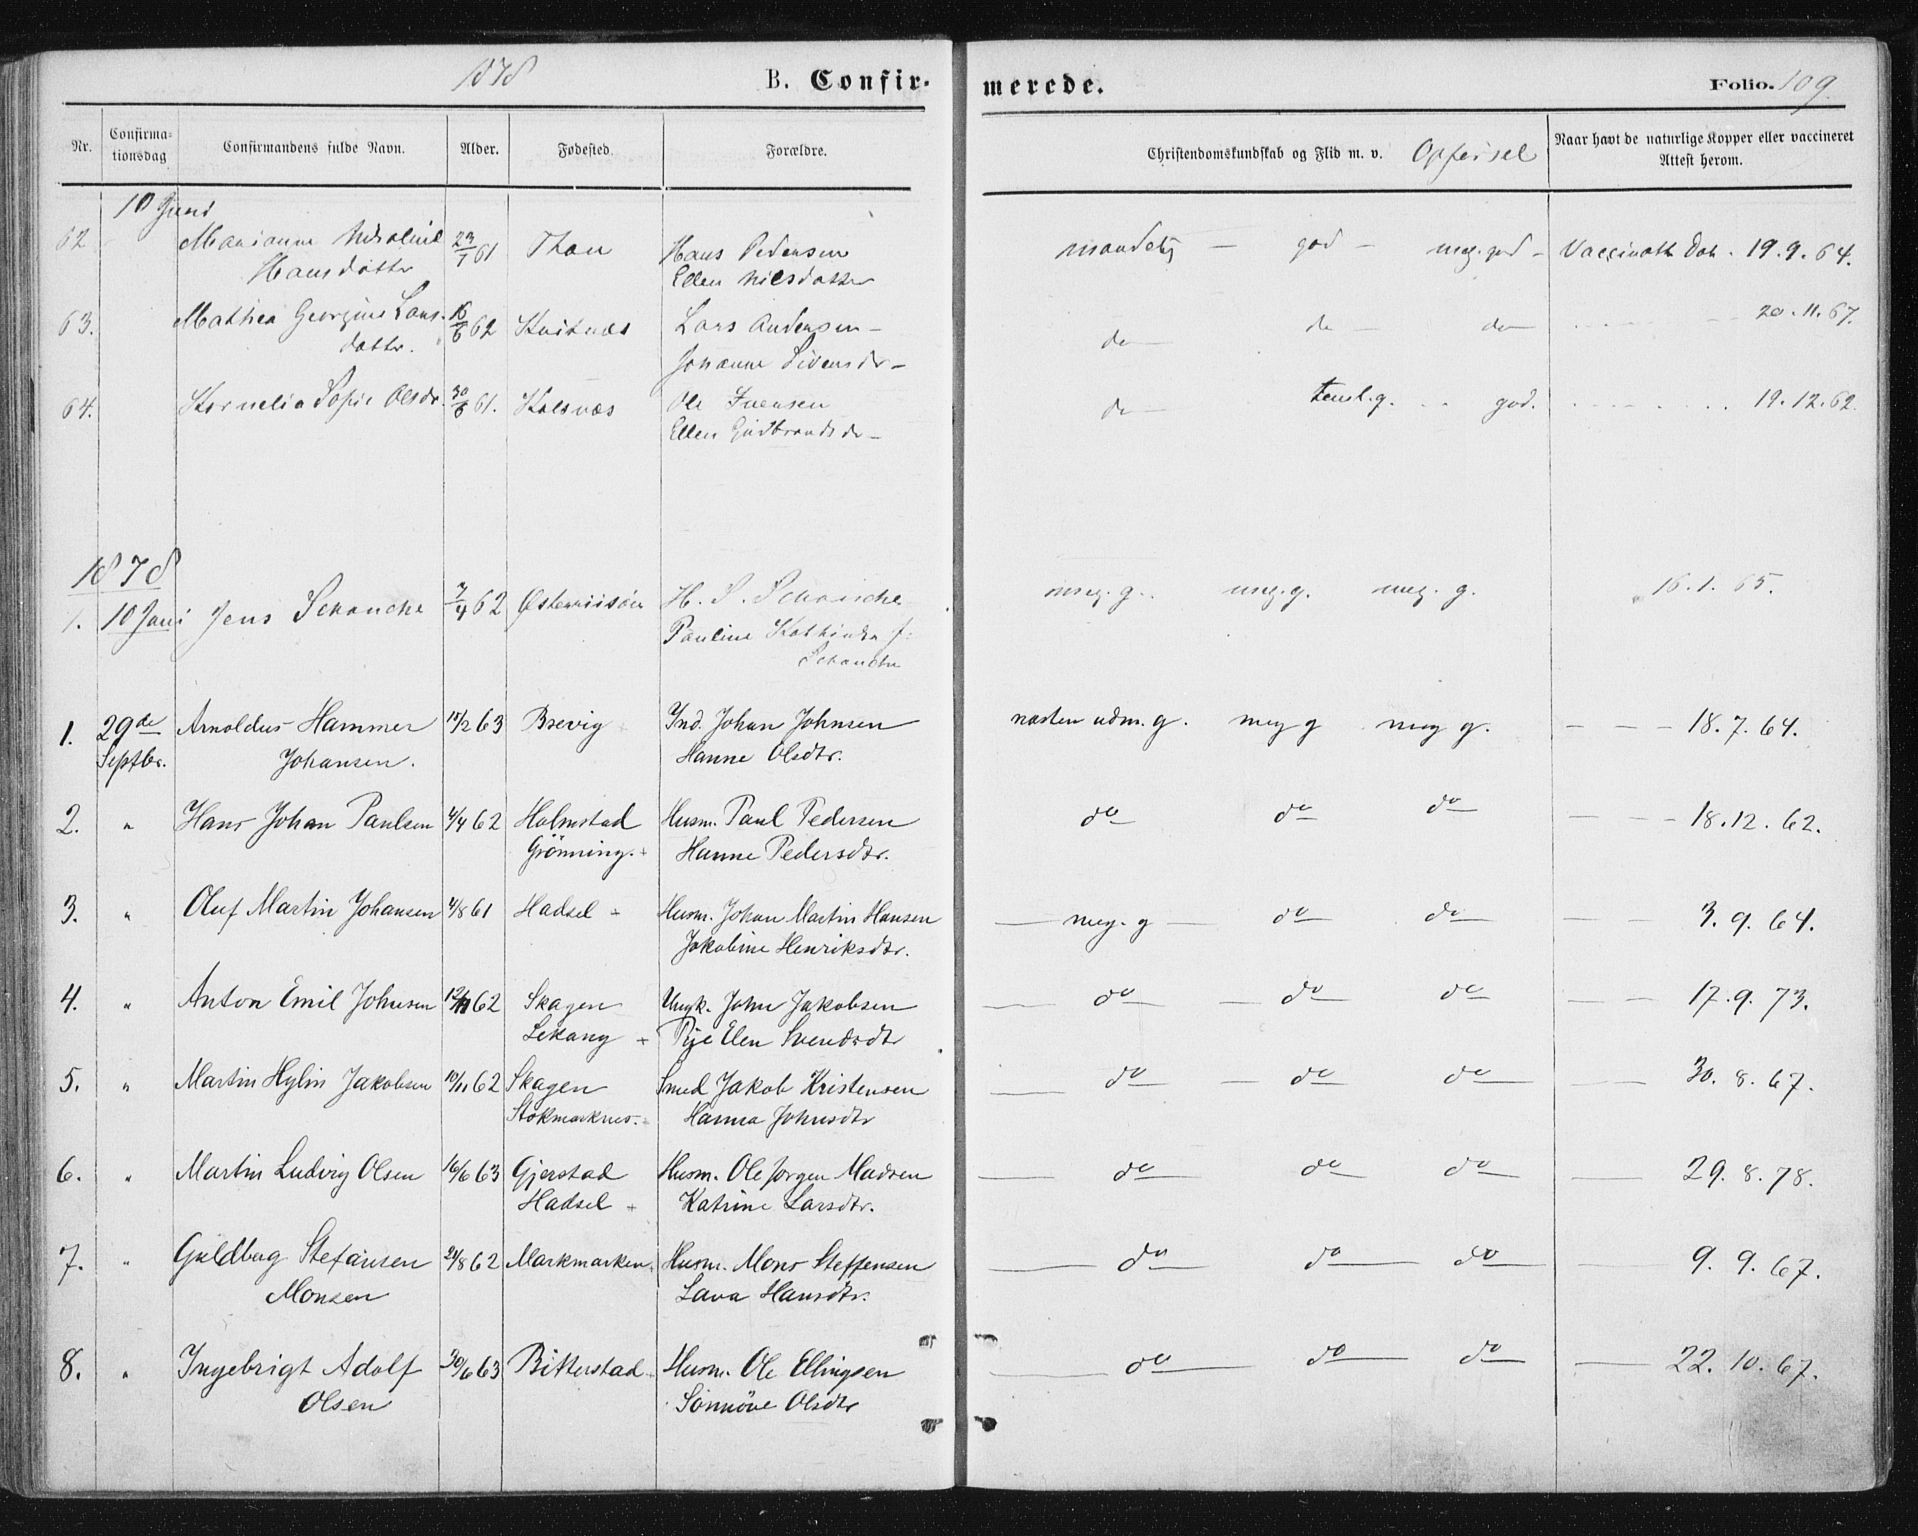 1878 B. Confirmerede. Folio. 109.
Nr. Confirmationsdag Confirmandens fulde Navn. Alder. Fødested. Forældre. Christendomskundskab og Flid m. v. Opførsel Naar havt de naturlige Kopper eller vaccineret Attest herom.
10 Juni
62 Marianne 23/1 61 Thon Hans Pedersen maadelig – god – meg. god – Vaccinatt. Dat. 19.9.64.
Hansdatter Ellen Nilsdatter
63. Mathea Georgine Lars- 16/6 62 Lars Andersen – do do – do 20.11.67.
datter. Johanne Sivertsdr –
64. Kornelia Sofie Olsdr. 30/6 61. Ole Iversen do temel.g. god. 19.12.62.
Ellen Gudbrandsdr –
1878
1. 10 Juni Jens Schanche 7/4 62 Østerriisöer H. S. Schanche meg. g. meg. g. meg. g. 16.1.65.
Pauline Kathinka f:
Schanche
1. 29de Arnoldus Hammer 18/2 63 Brevig Ind. Johan Johnsen næsten udm. g. meg g meg g. – – – 18.7.64.
Septbr. Johansen. Hanne Olsdtr.
2. " Hans Johan Paulsen 4/4 62 Holmstad Husm. Paul Pedersen do do do – – – 18.12.62.
Grönning. + Hanne Pedersdtr.
3. " Oluf Martin Johansen 4/8 61 Hadsel + Husm. Johan Martin Hansen – meg. g – do do – – 3.9.64.
Jakobine Henriksdtr.
4. " Anton Emil Johnsen 12/11 62 Skagen Ungk. John Jakobsen – do – do do – – 17.9.73.
Lekang + Elen Svendsdtr
5. " Martin Hylin Jakobsen 10/11 62 Skagen Smed Jakob Kristensen – do – do do – – 30.8.67.
Stokmarknes. Hanna Johnsdtr
6. " Martin Ludvig Olsen 16/6 63 Gjerstad Husm. Ole Jørgen Madsen – do do do – – 29.8.78.
Hadsel + Katrine Larsdtr.
7. " Guldbag Stefansen 24/8 62 Markmarken. Husm. Mons Steffensen – do – do do – – 9.9.67.
Monsen Lava Hansdtr.
8. " Ingebrigt Adolf 30/6 63 Bitterstad Husm. Ole Ellingsen – do – do do – – 22.10.67.
Olsen Sönnöve Olsdtr